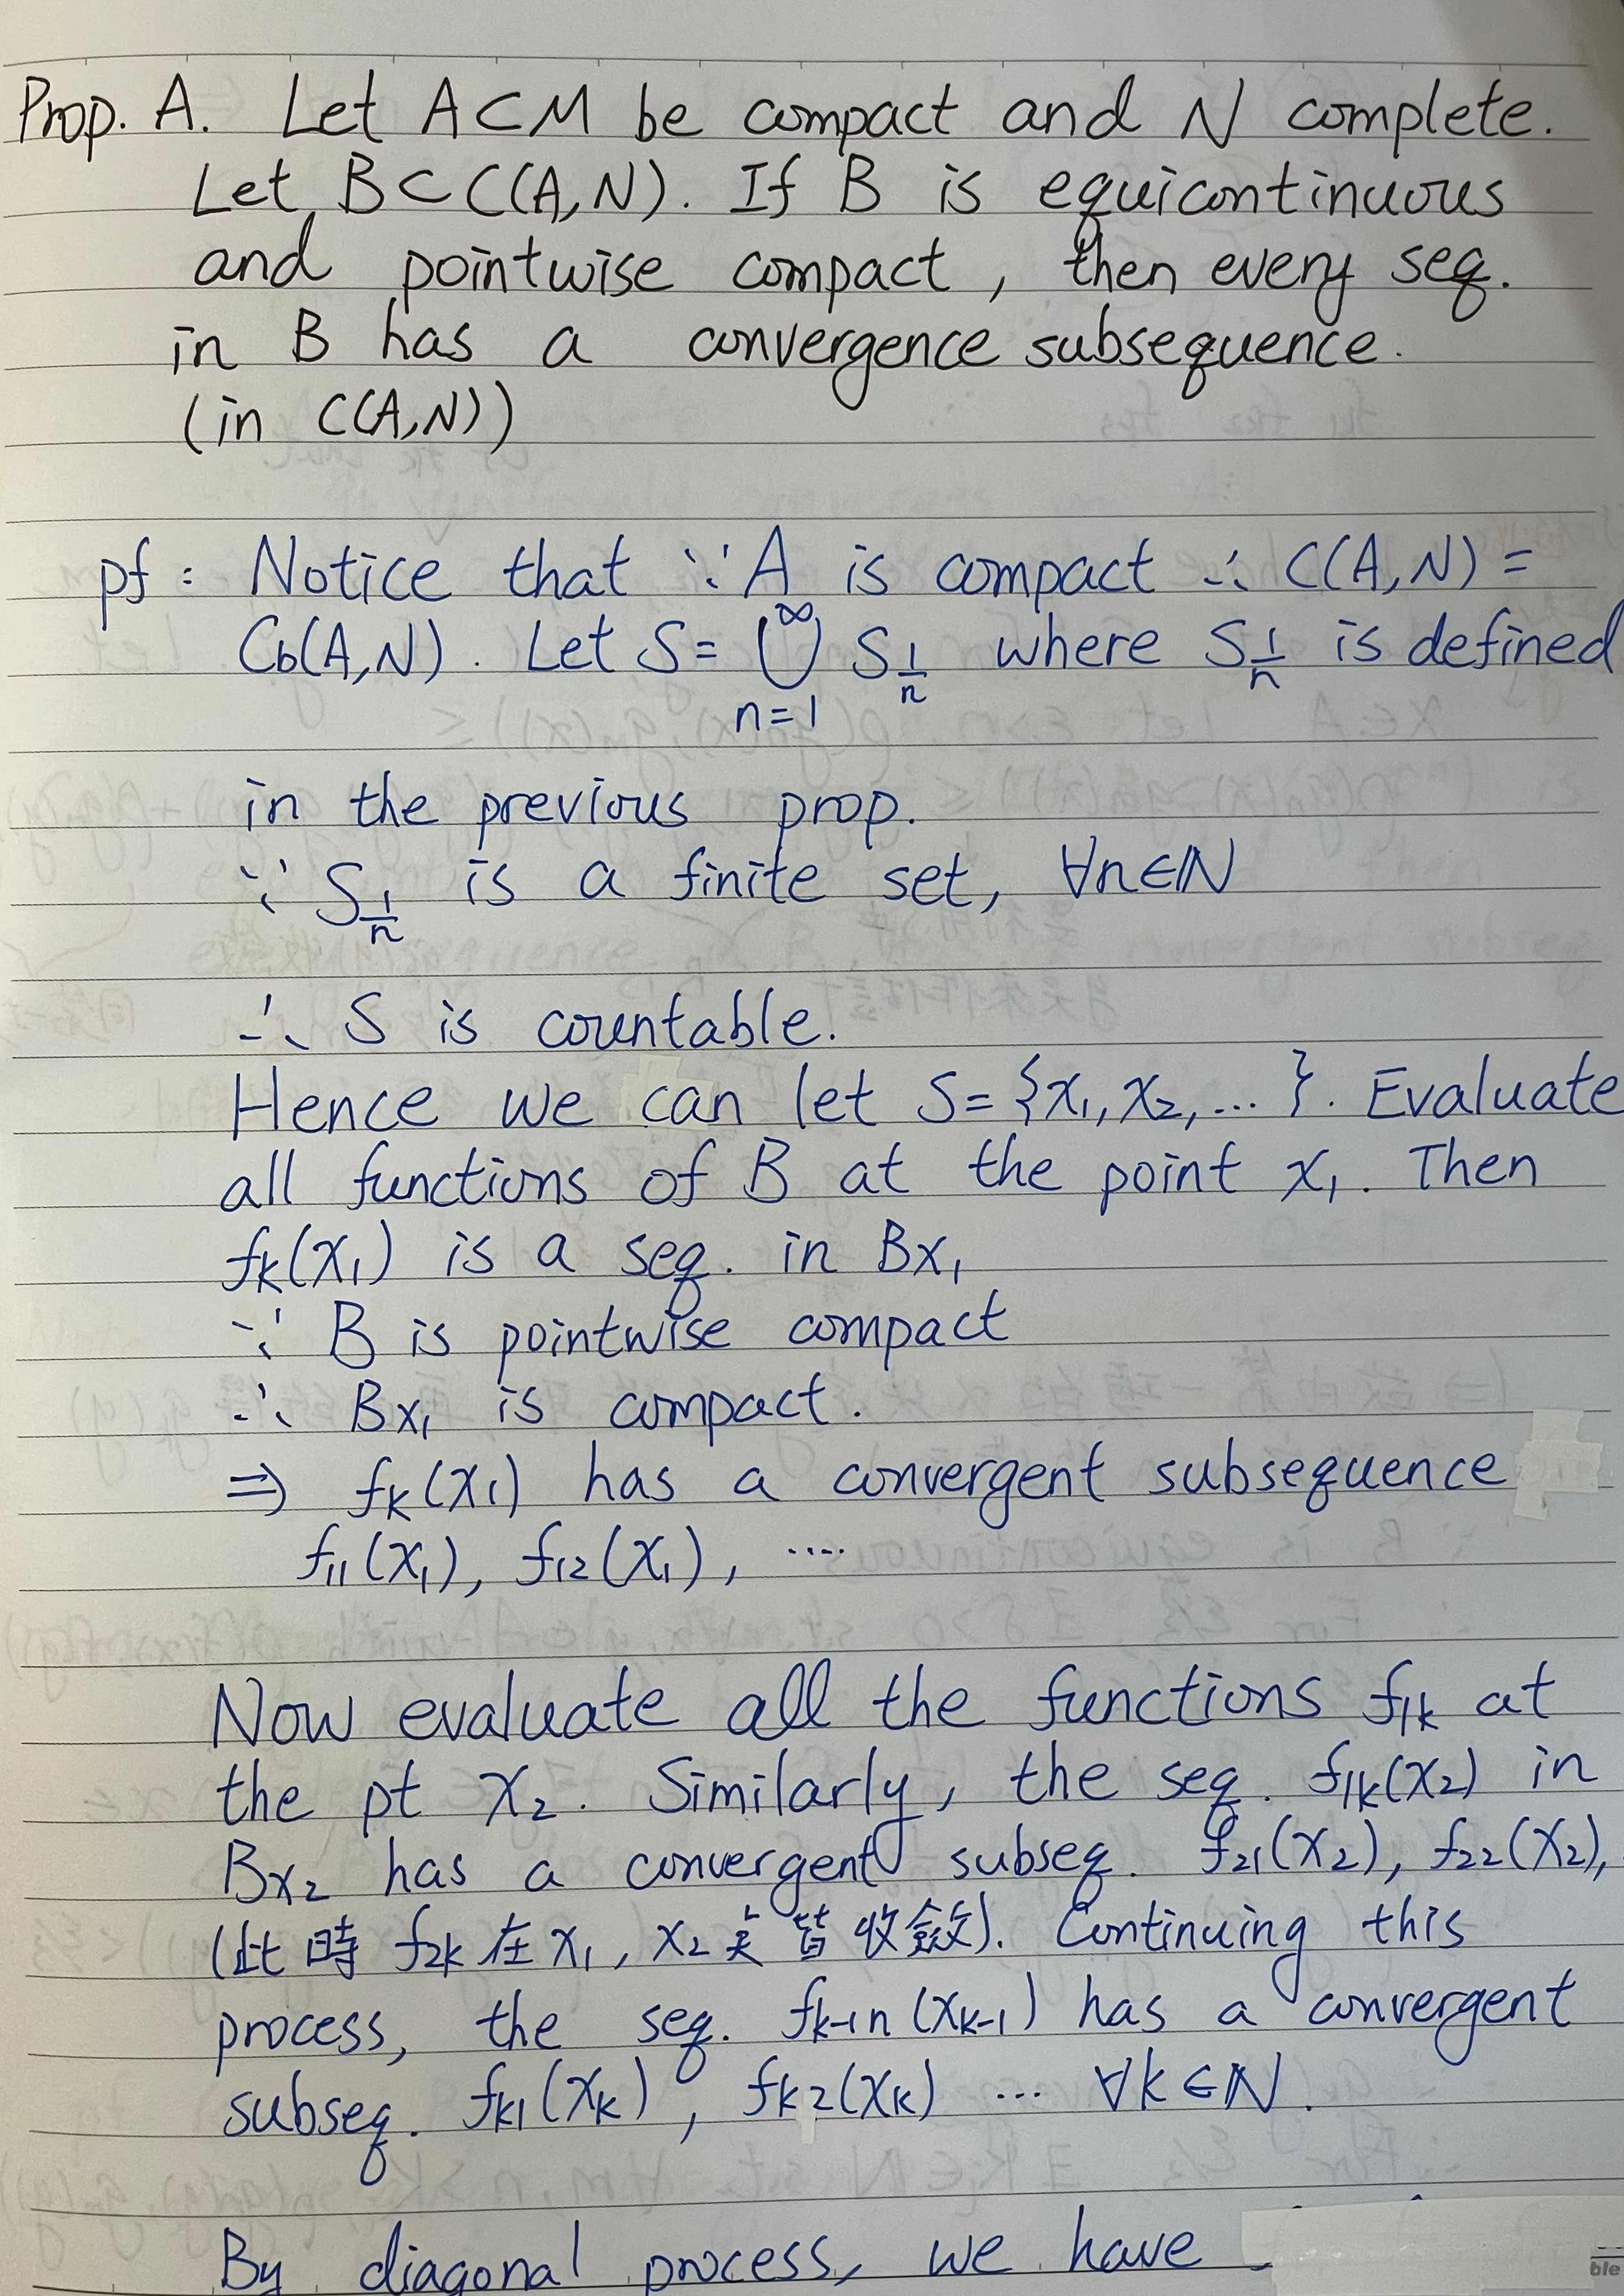 Prop. A. Let A⊂M be compact and N complete.
Let B⊂C(A,N). If B is equicontinuous
and pointwise compact, then every seq.
in B has a convergence subsequence.
(in C(A,N))
pf: Notice that ∵A is compact ∴ C(A,N) =
Cb(A,N). Let S = ∞⋃n=1 S1/n where S1/n is defined
in the previous prop.
∵ S1/n is a finite set, ∀n∈ℕ
∴ S is countable.
Hence we can let S={x1, x2, ... }. Evaluate
all functions of B at the point x1. Then
fk(x1) is a seq. in Bx1
∵ B is pointwise compact
∴ Bx1 is compact.
⇒ fk(x1) has a convergent subsequence
f11(x1), f12(x1), ....
Now evaluate all the functions f1k at
the pt x2. Similarly, the seq. f1k(x2) in
Bx2 has a convergent subseq. f21(x2), f22(x2),
(此時 f2k 在 x1, x2 皆收斂). Continuing this
process, the seq. fk-1n(xk-1) has a convergent
subseq. fk1(xk), fk2(xk) ... ∀k∈ℕ.
By diagonal process, we have